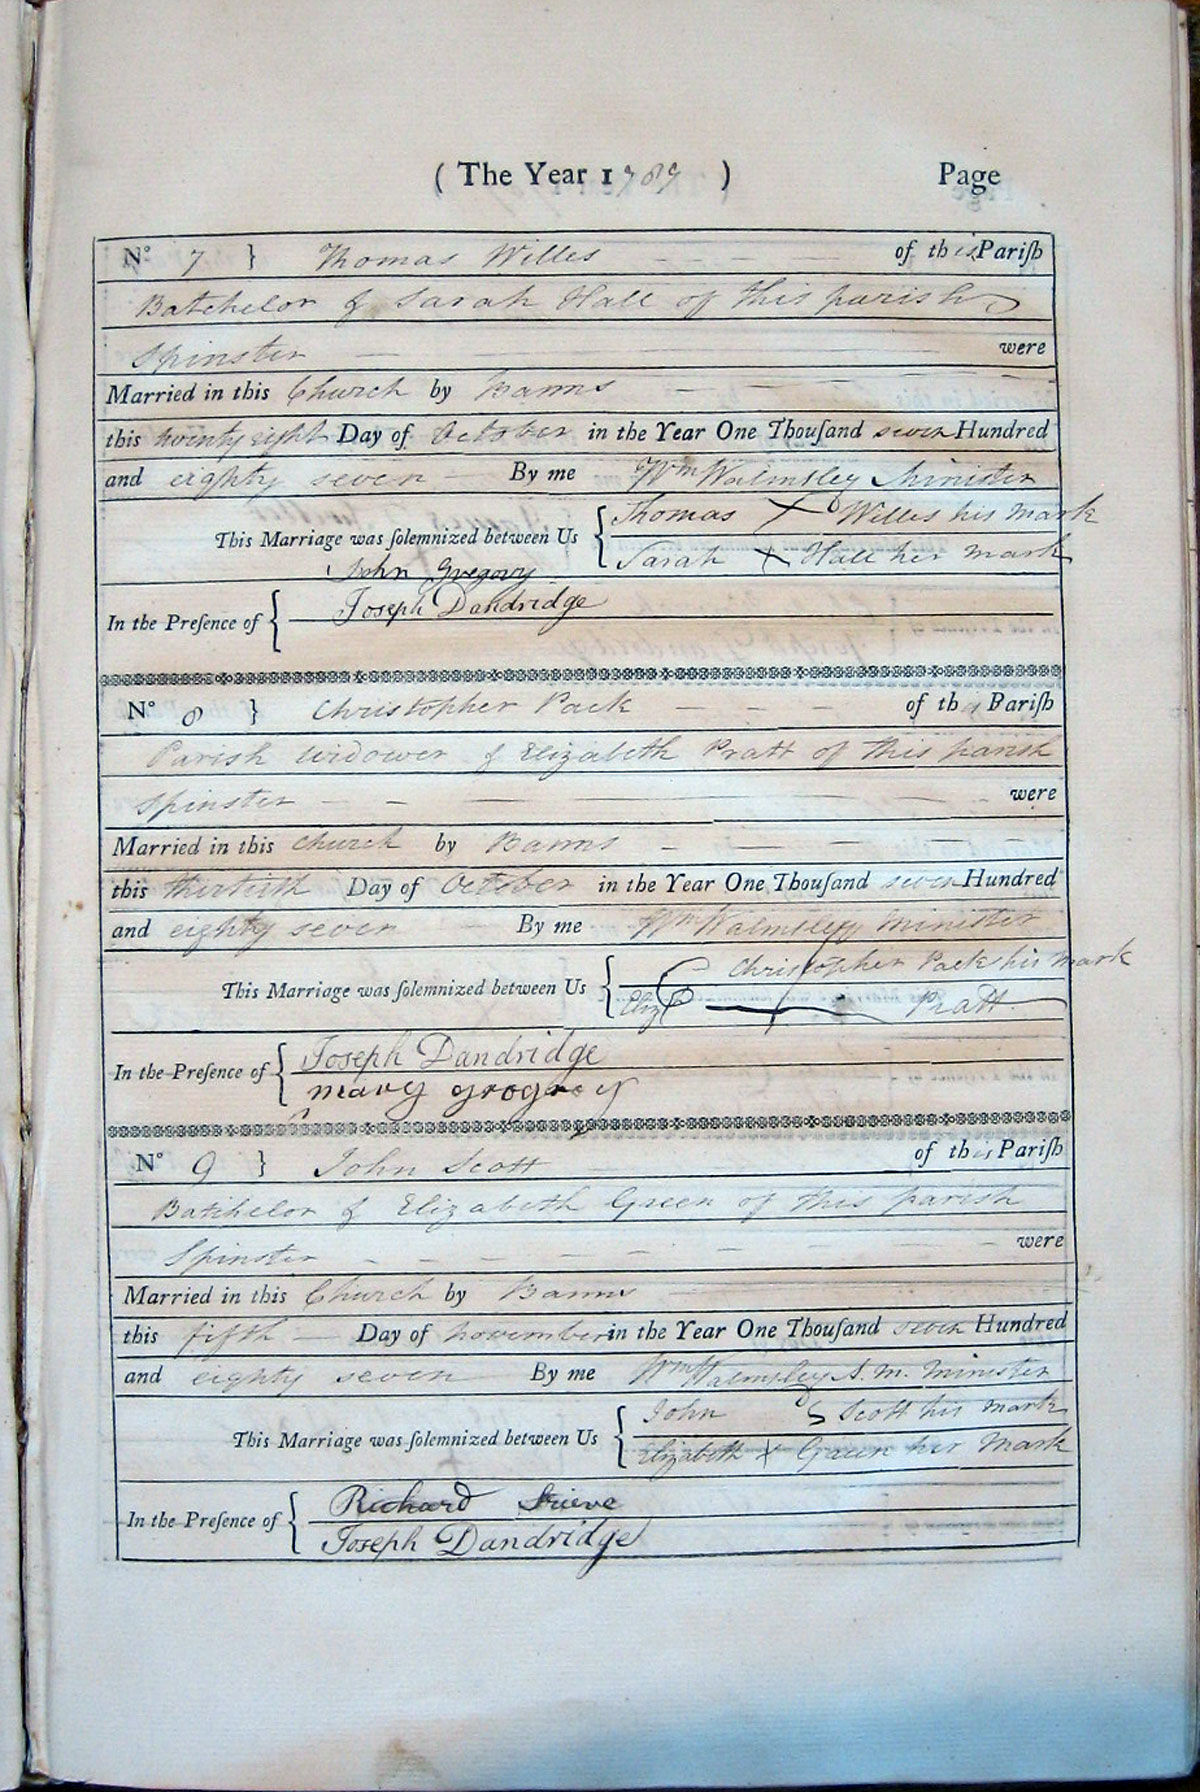 ( The Year 1787 ) Page
No 7 } Thomas Willes of this Pariſh
Batchelor & Sarah Hall of this parish
Spinster were
Married in this Church by Banns
this twenty eight Day of October in the Year One Thouſand seven Hundred
and eighty seven By me Wm Walmsley Minister
This Marriage was ſolemnized between Us { Thomas X Willes his mark
Sarah X Hall her mark
John Gregory
In the Preſence of { Joseph Dandridge
No 8 } Christopher Pack of this Pariſh
Parish widower & Elizabeth Pratt of this parish
Spinster were
Married in this Church by Banns
this thirtieth Day of October in the Year One Thouſand seven Hundred
and eighty seven By me Wm Walmsley Minister
This Marriage was ſolemnized between Us { Christopher Pack his mark
Eliz Pratt
In the Preſence of { Joseph Dandridge
mary
No 9 } John Scott of this Pariſh
Batchelor & Elizabeth Green of this parish
Spinster were
Married in this Church by Banns
this fifth Day of November in the Year One Thouſand seven Hundred
and eighty seven By me Wm Walmsley A.M. Minister
This Marriage was ſolemnized between Us { John Scott his mark
Elizabeth X Green her Mark
In the Preſence of { Richard Grieve
Joseph Dandridge